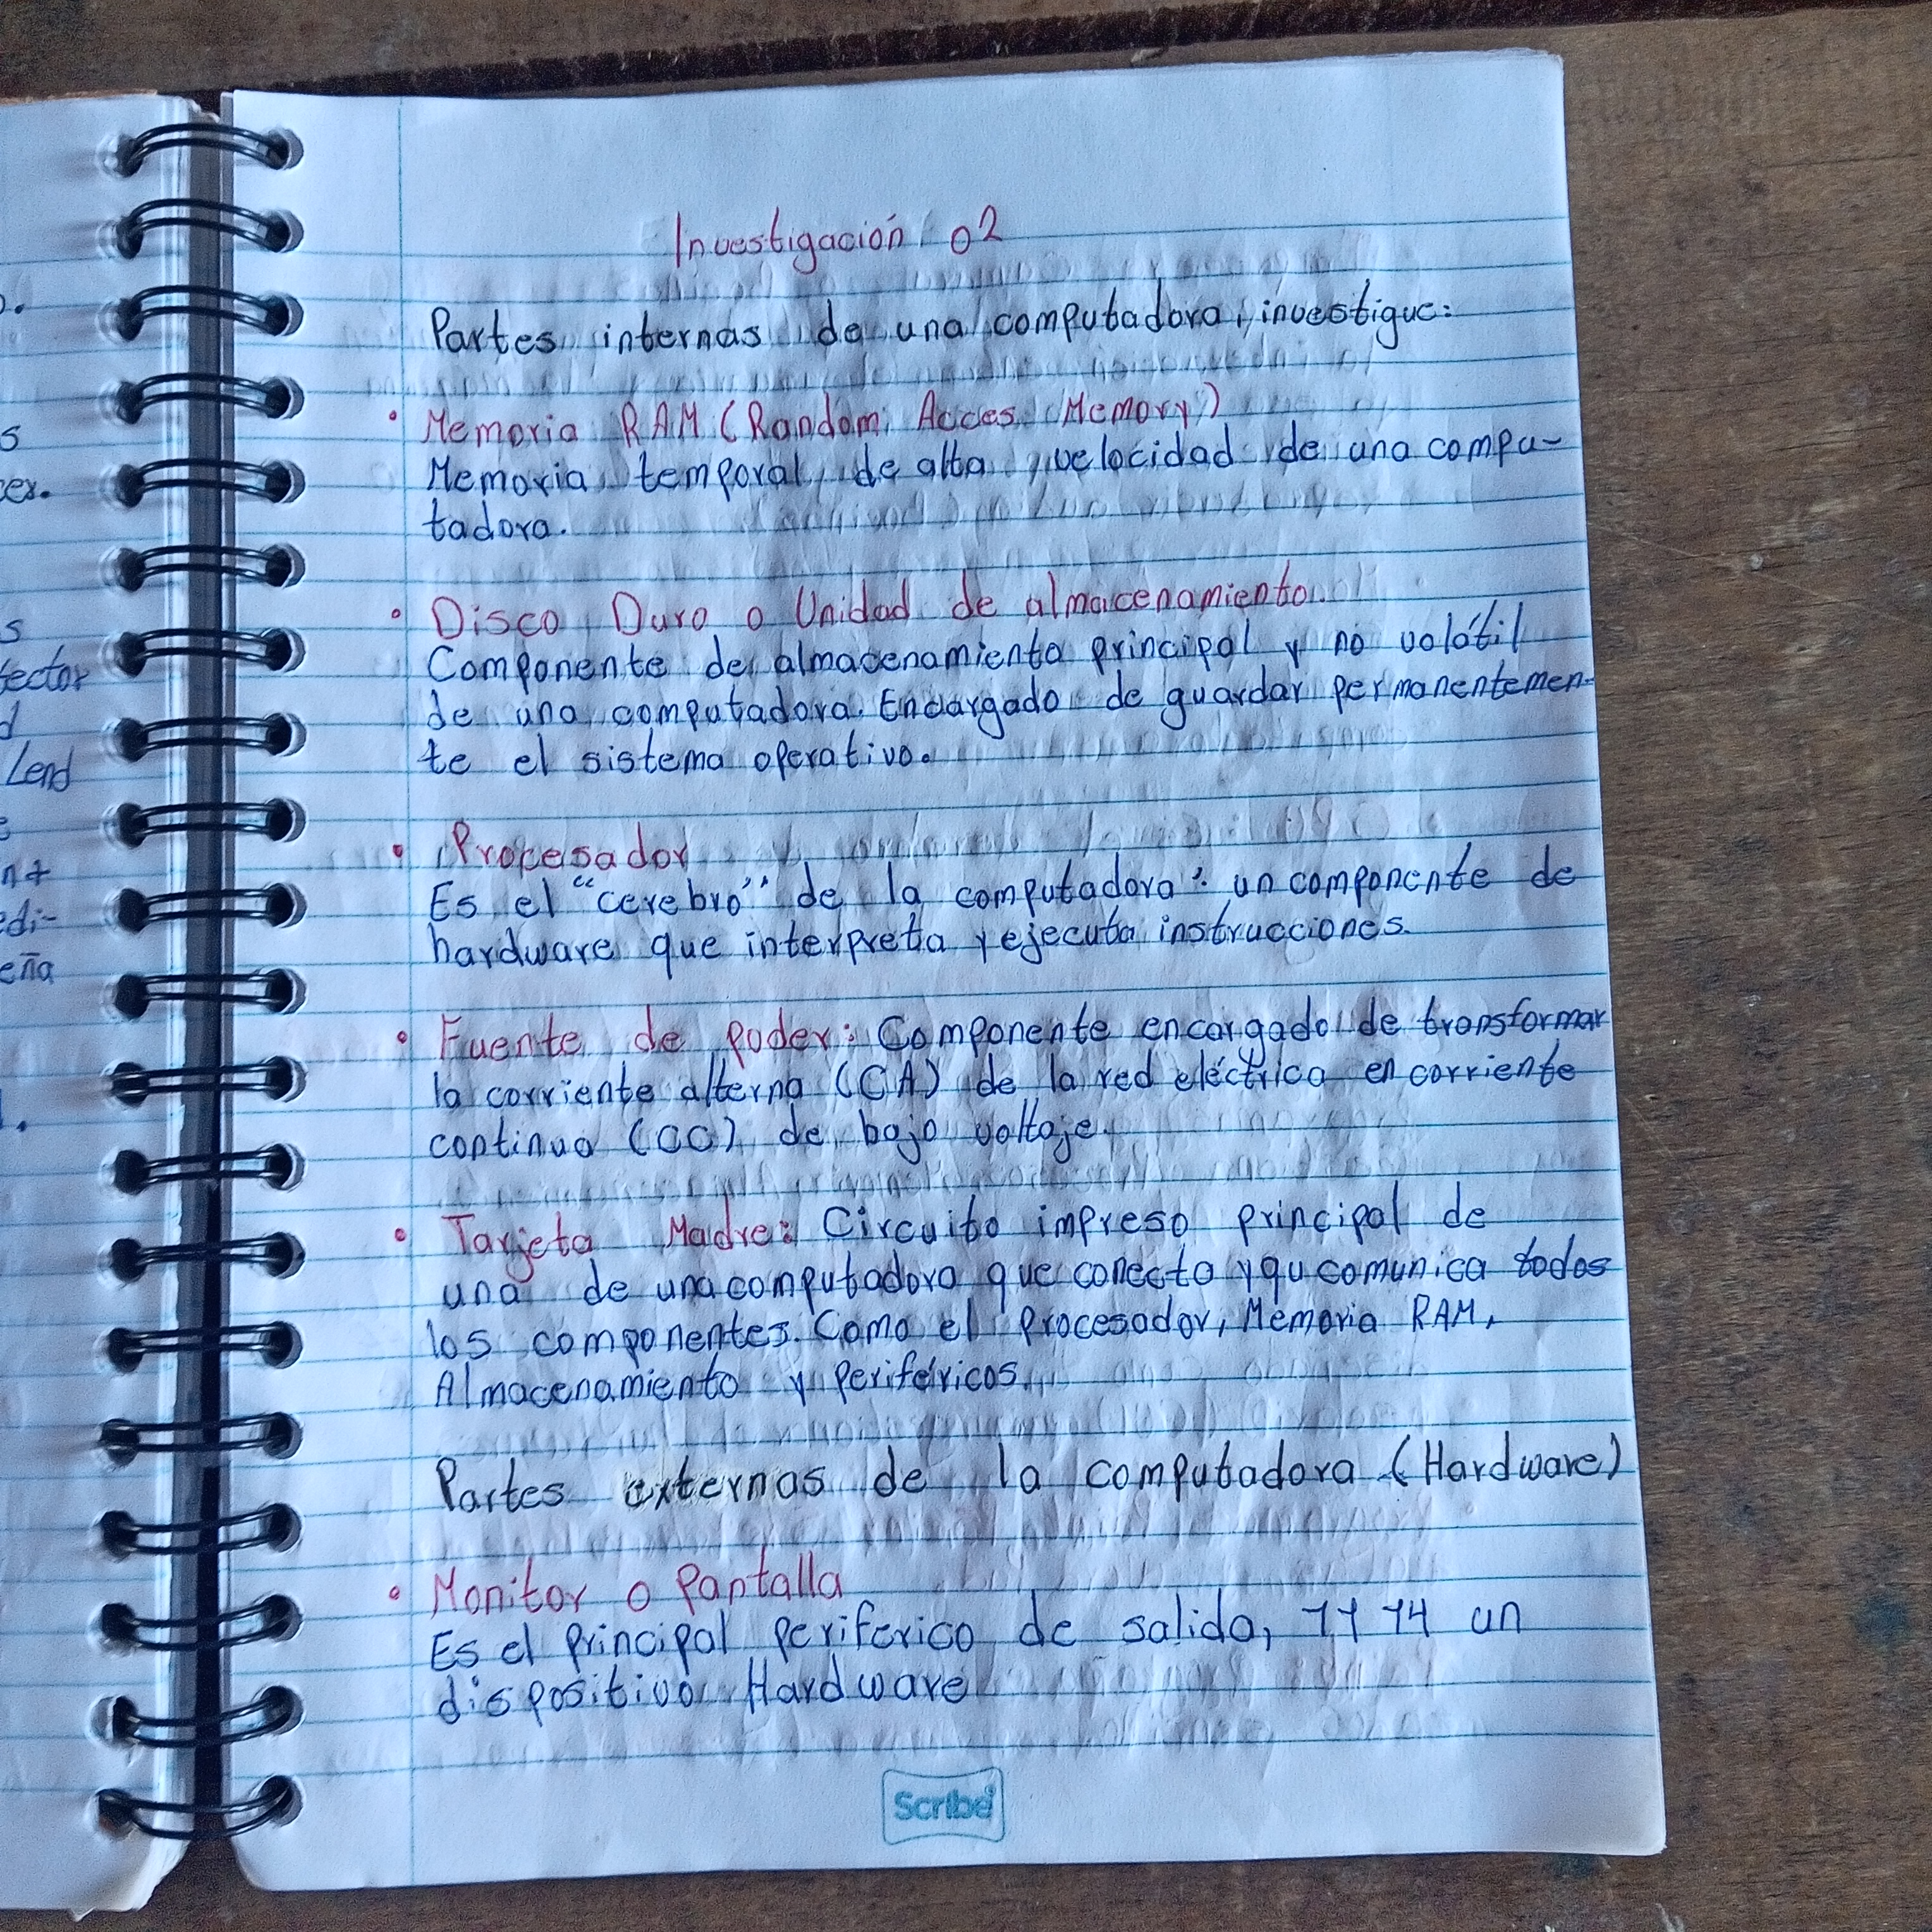 Investigación 02
Partes internas de una computadora, investigue:
• Memoria RAM (Random Acces Memory)
Memoria temporal de alta velocidad de una compu-
tadora.
• Disco Duro o Unidad de almacenamiento.
Componente de almacenamiento principal y no volátil
de una computadora. Encargado de guardar permanentemen-
te el sistema operativo.
• Procesador
Es el "cerebro" de la computadora: un componente de
hardware que interpreta y ejecuta instrucciones.
• Fuente de poder: Componente encargado de transformar
la corriente alterna (CA) de la red eléctrica en corriente
continua (CC) de bajo voltaje.
• Tarjeta Madre: Circuito impreso principal de
una de una computadora que conecta y qu comunica todos
los componentes. Como el procesador, Memoria RAM,
Almacenamiento y periféricos.
Partes externas de la computadora (Hardware)
• Monitor o Pantalla
Es el principal periferico de salida, un
dispositivo Hardware
Scribe
s
ector
d
Lend
edi-
eña